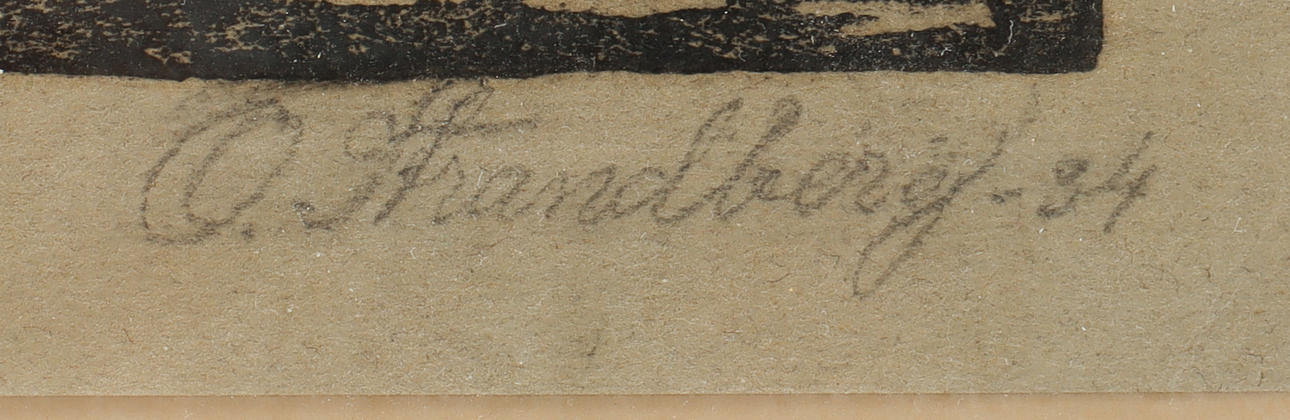 O. Strandberg - 34